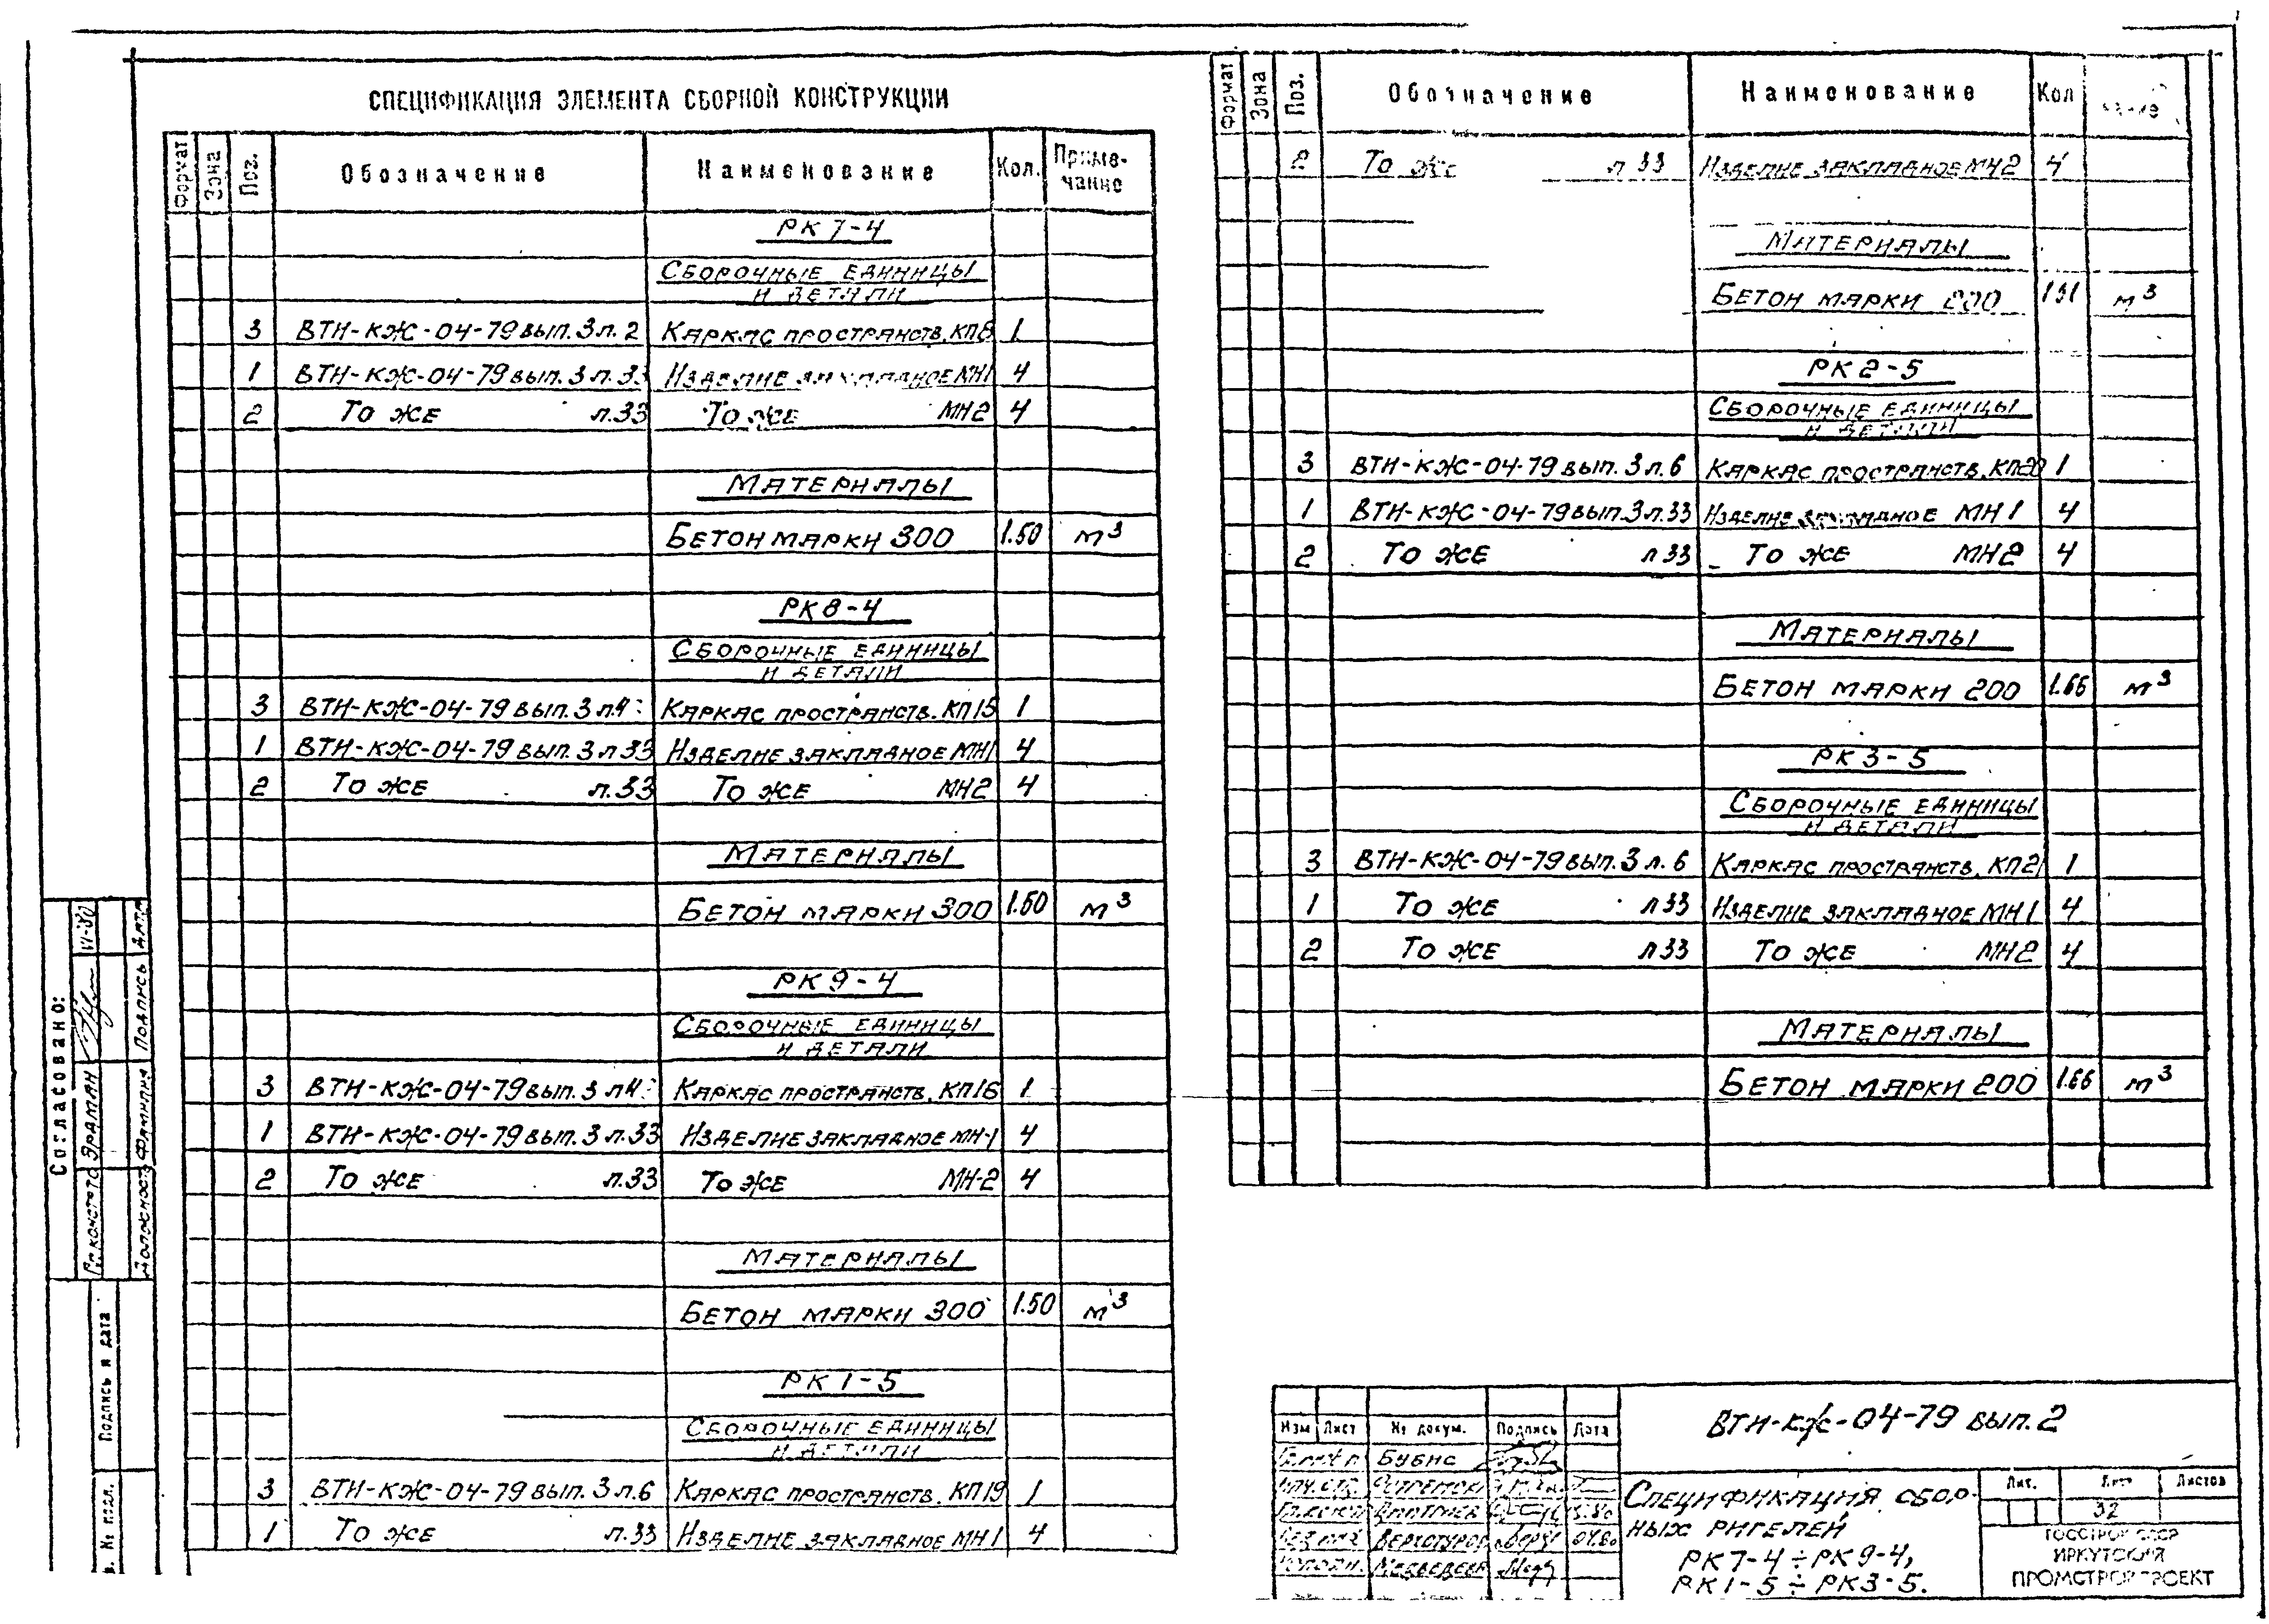 СПЕЦИФИКАЦИЯ ЭЛЕМЕНТА СБОРНОЙ КОНСТРУКЦИИ
Формат Зона Поз. Обозначение Наименование Кол. Приме-
чание
РК 7-4
СБОРОЧНЫЕ ЕДИНИЦЫ
И ДЕТАЛИ
3 ВТИ-КЖ-04-79 вып. 3 л. 2 КАРКАС ПРОСТРАНСТВ. КП8 1
1 ВТИ-КЖ-04-79 вып. 3 л. 33 ИЗДЕЛИЕ ЗАКЛАДНОЕ МН1 4
2 ТО ЖЕ л.33 ТО ЖЕ МН2 4
МАТЕРИАЛЫ
БЕТОН МАРКИ 300 1.50 м³
РК 8-4
СБОРОЧНЫЕ ЕДИНИЦЫ
И ДЕТАЛИ
3 ВТИ-КЖ-04-79 вып. 3 л.4 КАРКАС ПРОСТРАНСТВ. КП15 1
1 ВТИ-КЖ-04-79 вып. 3 л 33 ИЗДЕЛИЕ ЗАКЛАДНОЕ МН1 4
2 ТО ЖЕ л.33 ТО ЖЕ МН2 4
МАТЕРИАЛЫ
БЕТОН МАРКИ 300 1.50 м³
РК 9-4
СБОРОЧНЫЕ ЕДИНИЦЫ
И ДЕТАЛИ
3 ВТИ-КЖ-04-79 вып. 3 л4 КАРКАС ПРОСТРАНСТВ. КП16 1
1 ВТИ-КЖ-04-79 вып. 3 л.33 ИЗДЕЛИЕ ЗАКЛАДНОЕ МН-1 4
2 ТО ЖЕ л.33 ТО ЖЕ МН-2 4
МАТЕРИАЛЫ
БЕТОН МАРКИ 300 1.50 м³
РК 1-5
СБОРОЧНЫЕ ЕДИНИЦЫ
И ДЕТАЛИ
3 ВТИ-КЖ-04-79 вып. 3 л.6 КАРКАС ПРОСТРАНСТВ. КП19 1
1 ТО ЖЕ л.33 ИЗДЕЛИЕ ЗАКЛАДНОЕ МН1 4
Формат Зона Поз. Обозначение Наименование Кол
чание
2 ТО ЖЕ л 33 ИЗДЕЛИЕ ЗАКЛАДНОЕ МН2 4
МАТЕРИАЛЫ
БЕТОН МАРКИ 200 м³
РК 2-5
СБОРОЧНЫЕ ЕДИНИЦЫ
И ДЕТАЛИ
3 ВТИ-КЖ-04-79 вып. 3 л. 6 КАРКАС ПРОСТРАНСТВ. КП20 1
1 ВТИ-КЖ-04-79 вып. 3 л.33 ИЗДЕЛИЕ ЗАКЛАДНОЕ МН 1 4
2 ТО ЖЕ л 33 ТО ЖЕ МН2 4
МАТЕРИАЛЫ
БЕТОН МАРКИ 200 1.66 м³
РК 3-5
СБОРОЧНЫЕ ЕДИНИЦЫ
И ДЕТАЛИ
3 ВТИ-КЖ-04-79 вып. 3 л. 6 КАРКАС ПРОСТРАНСТВ. КП21 1
1 ТО ЖЕ л 33 ИЗДЕЛИЕ ЗАКЛАДНОЕ МН1 4
2 ТО ЖЕ л 33 ТО ЖЕ МН2 4
МАТЕРИАЛЫ
БЕТОН МАРКИ 200 1.66 м³
Согласовано:
ЭРДМАН VI-80
ДОЛЖНОСТЬ ФАМИЛИЯ ПОДПИСЬ ДАТА
Подпись и дата
№ подл.
Изм Лист № докум. Подпись Дата
БУБИС
МЕДВЕДЕВА
ВТИ-КЖ-04-79 вып. 2
СПЕЦИФИКАЦИЯ СБОР-
НЫХ РИГЕЛЕЙ
РК 7-4 ÷ РК 9-4,
РК 1-5 ÷ РК 3-5.
Лит. Лист Листов
32
ГОССТРОЙ СССР
ИРКУТСКИЙ
ПРОМСТРОЙПРОЕКТ